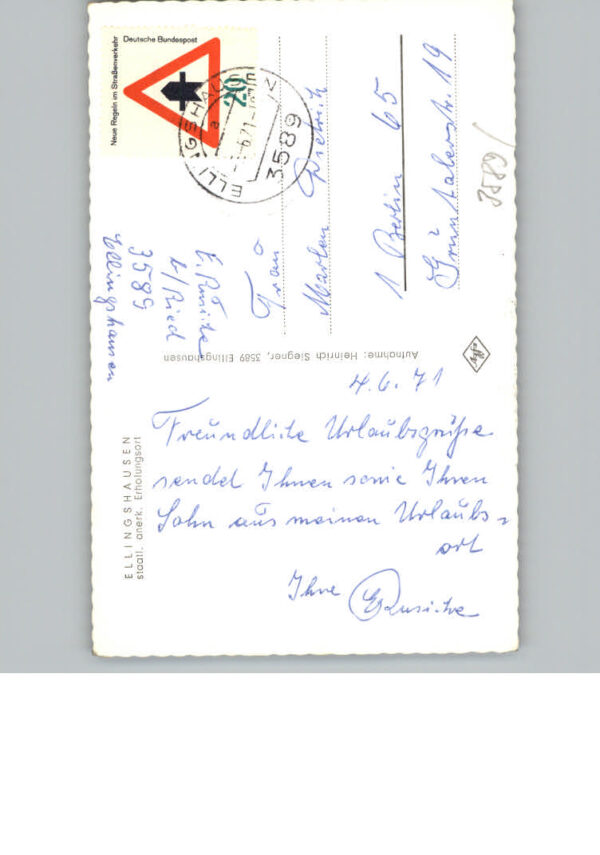 Deutsche Bundespost
Neue Regeln im Straßenverkehr
20
ELLINGSHAUSEN
3589
a
Frau
Marlen Dietrich
1 Berlin 65
Grüntalerstr. 19
3589/
b/Ried
3589
Ellingshausen
Aufnahme: Heinrich Siegner, 3589 Ellingshausen
ELLINGSHAUSEN
staatl. anerk. Erholungsort
4.6.71
Freundliche Urlaubsgrüße
sendet Ihnen sowie Ihren
Sohn aus meinen Urlaubs=
ort
Ihre